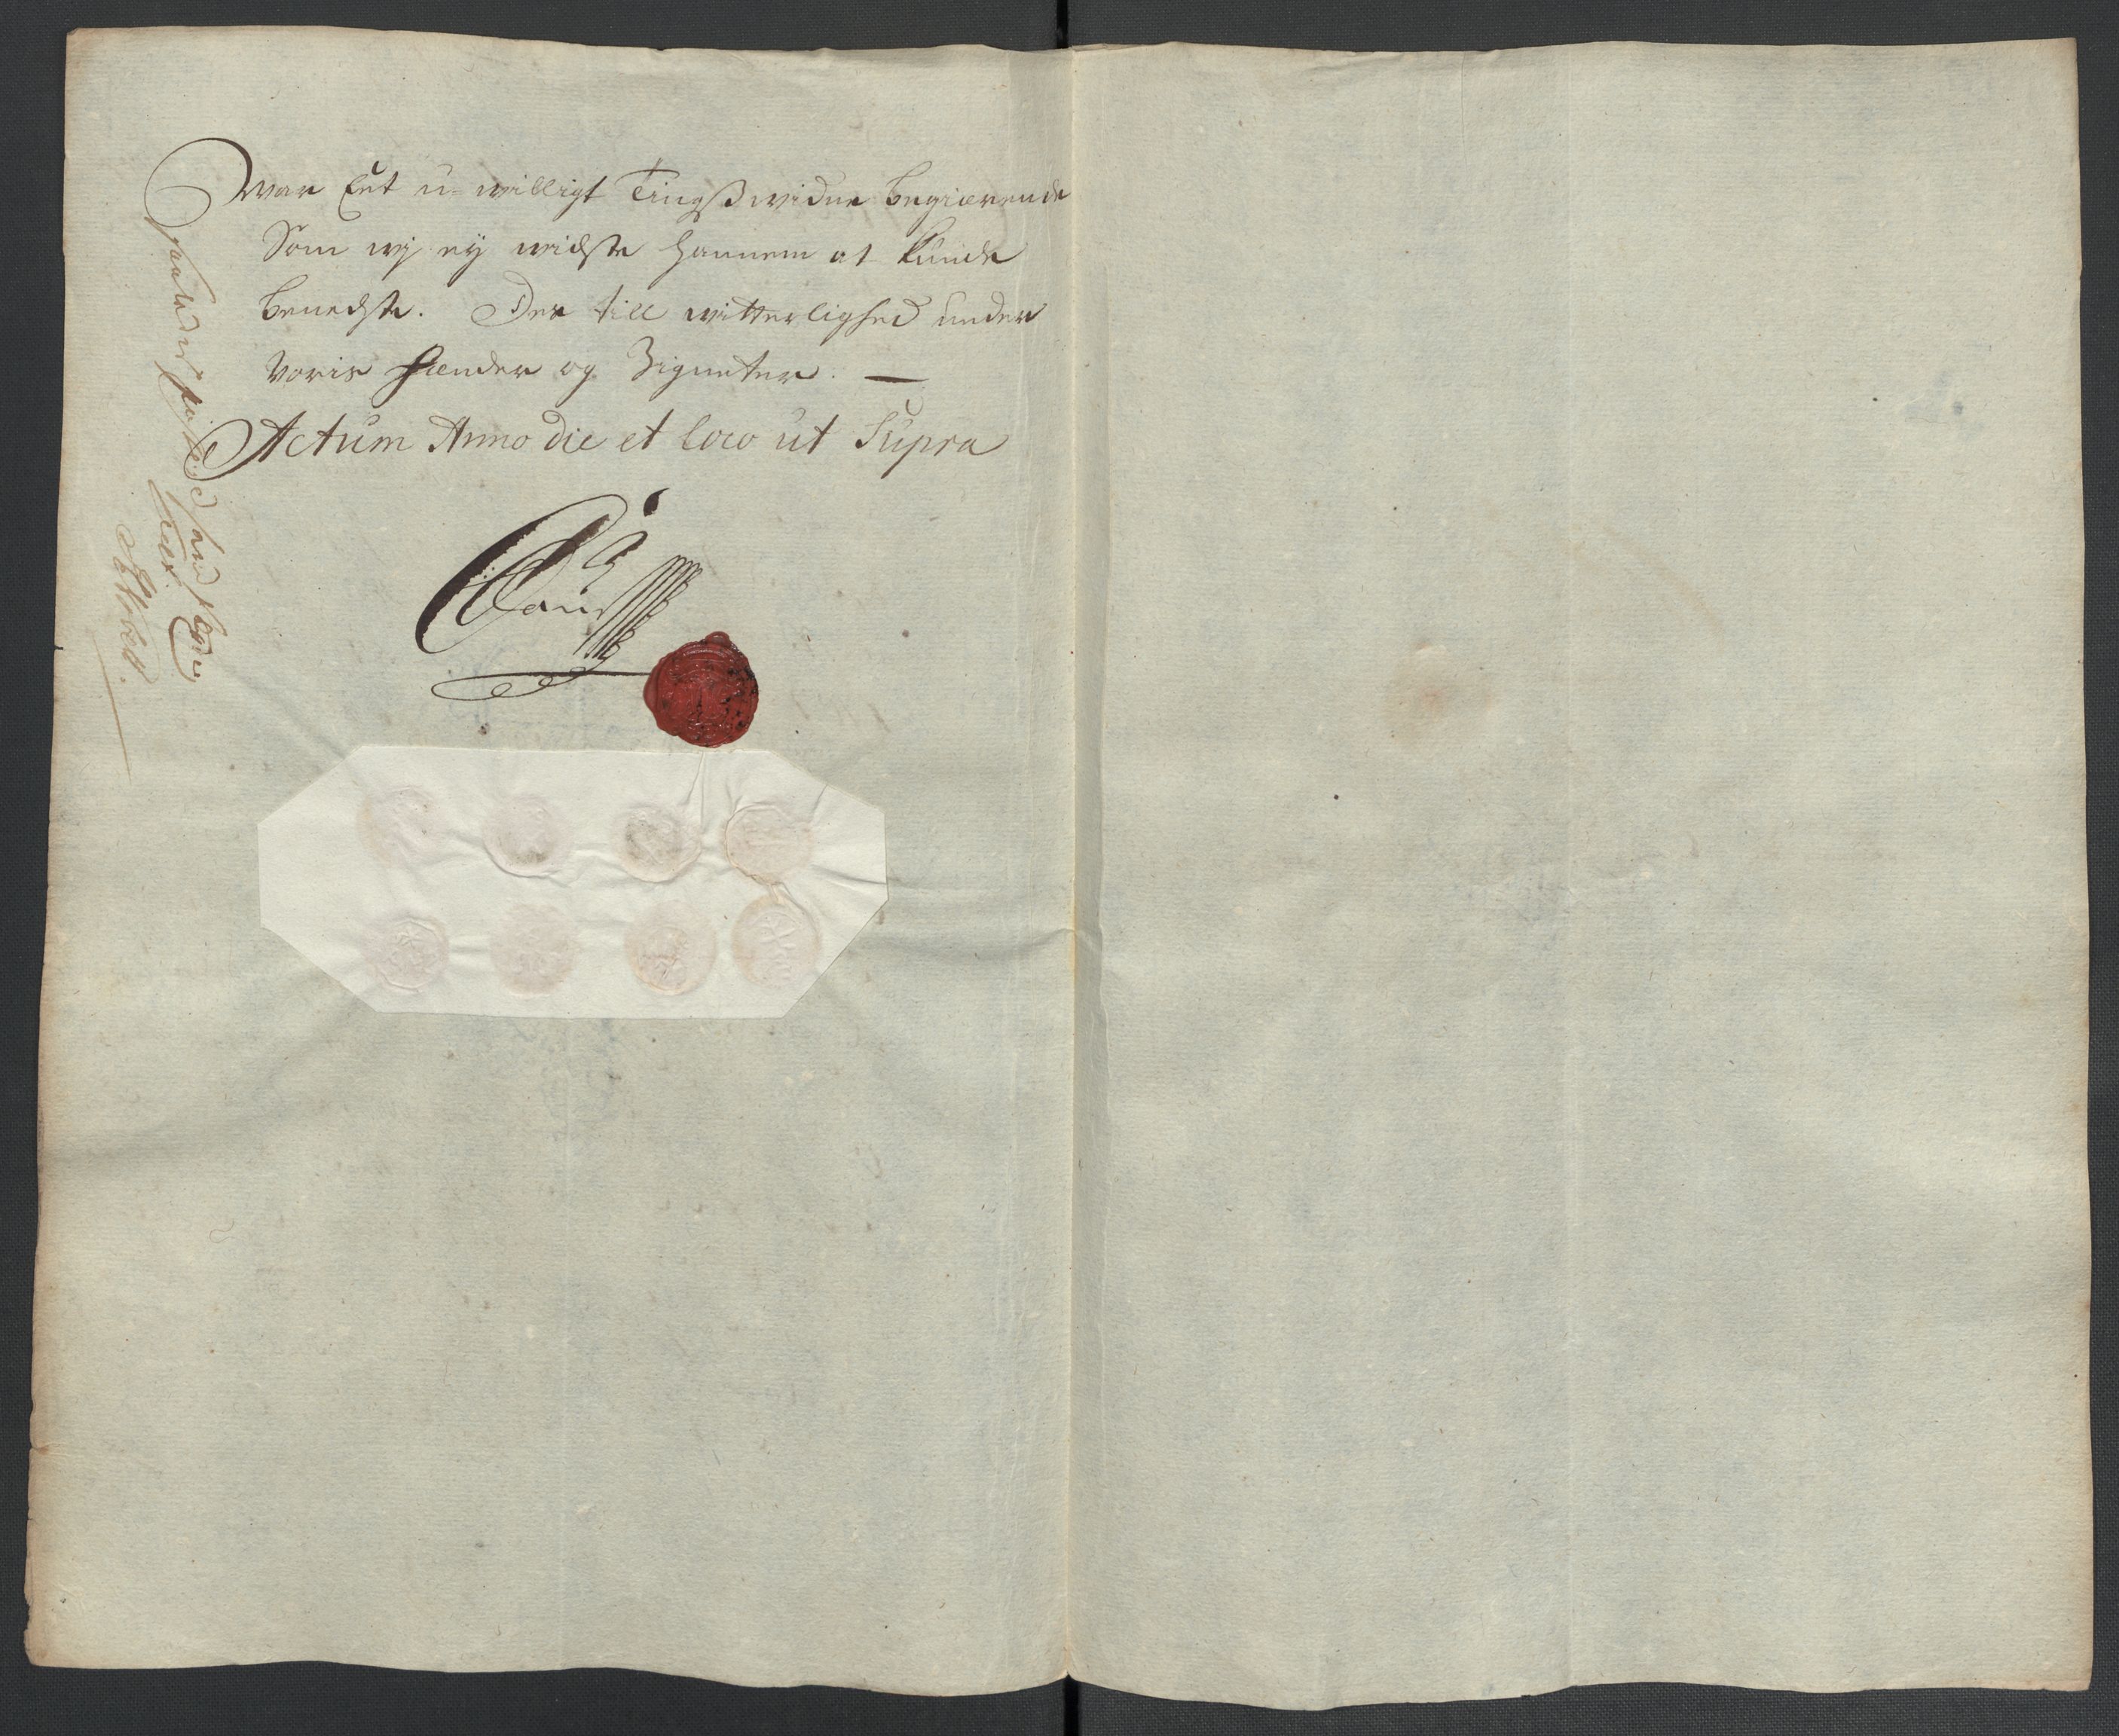 war Eet u-willigt Tingßwidne begiærende
Som wj ey widste hannem at kunde
benegte. Des till witterlighed under
voris Hænder og Zigneter. —
Actum Anno die et loco ut Supra